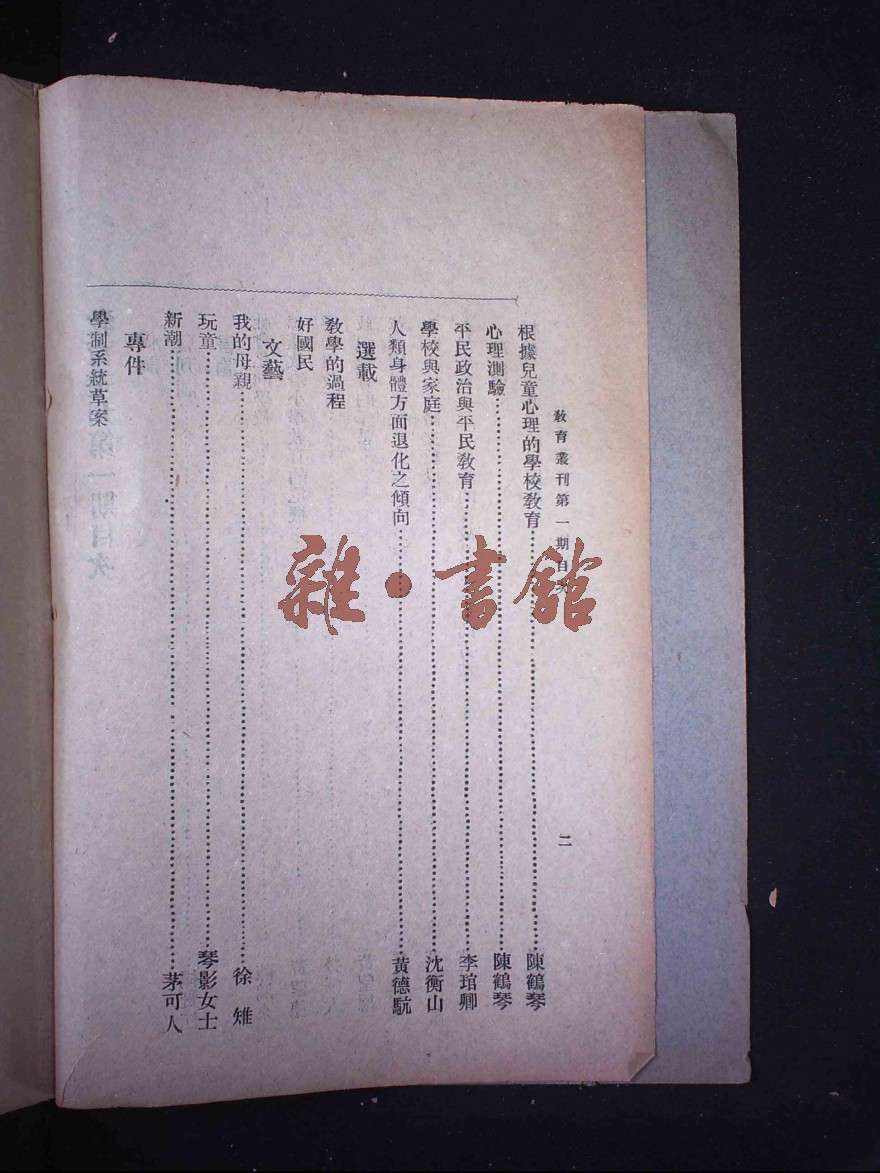 教育叢刊第一期目次
二
根據兒童心理的學校教育 陳鶴琴
心理測驗 陳鶴琴
平民政治與平民教育 李琯卿
學校與家庭 沈衡山
人類身體方面退化之傾向 黃德馸
選載
教學的過程
好國民
文藝
我的母親 徐雉
玩童 琴影女士
新潮 茅可人
專件
學制系統草案
雜·書館